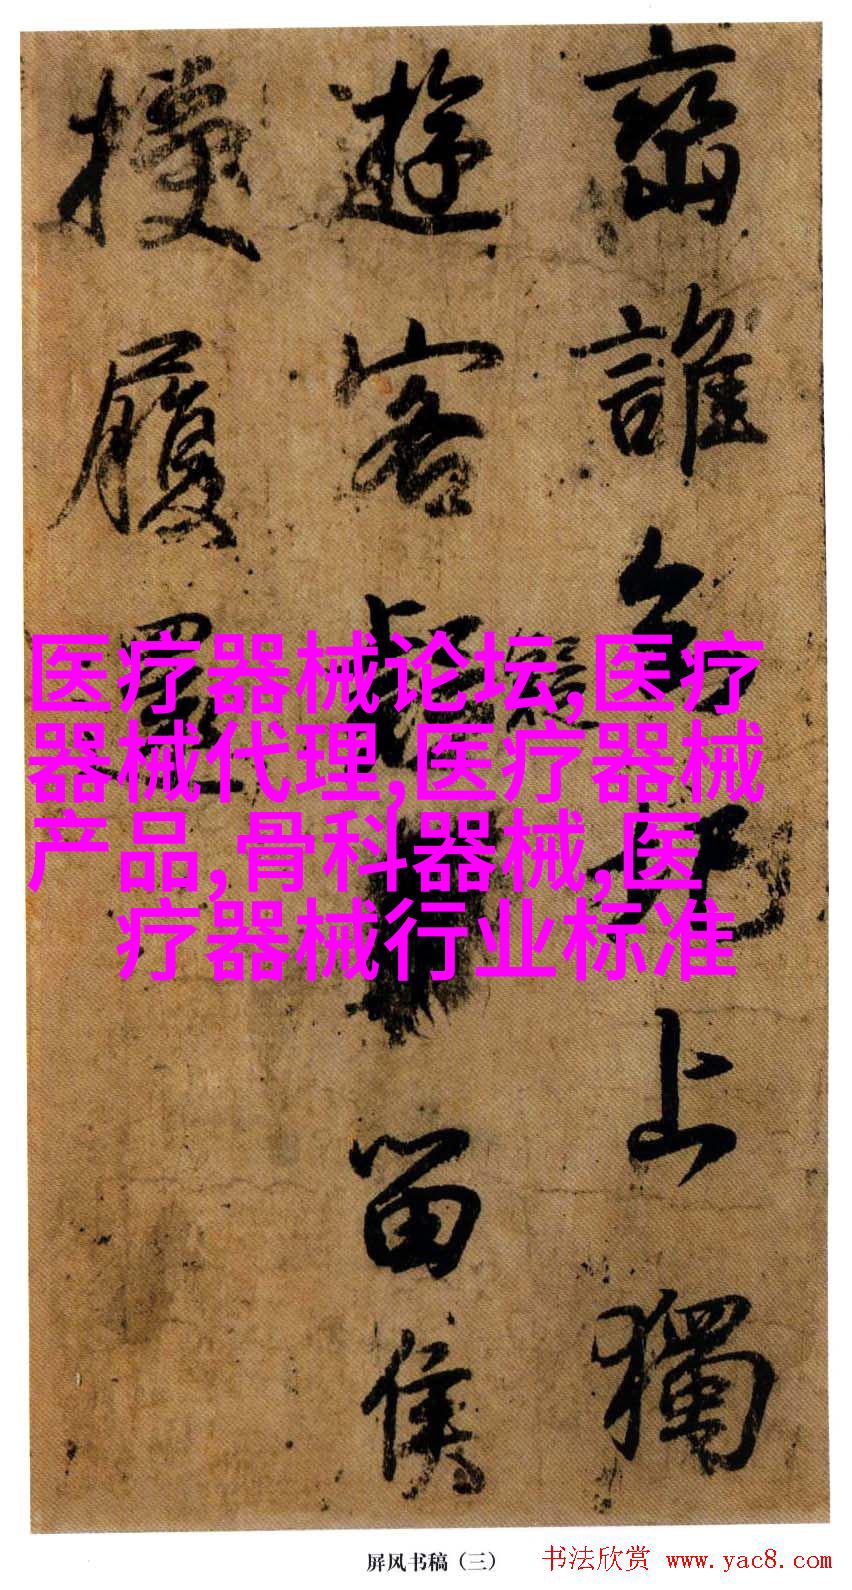 峦誰
上獨
遊客
留侯
履
医疗器械论坛,医疗
器械代理,医疗器械
产品,骨科器械,医
疗器械行业标准
屏风书稿（三）
书法欣赏 www.yac8.com